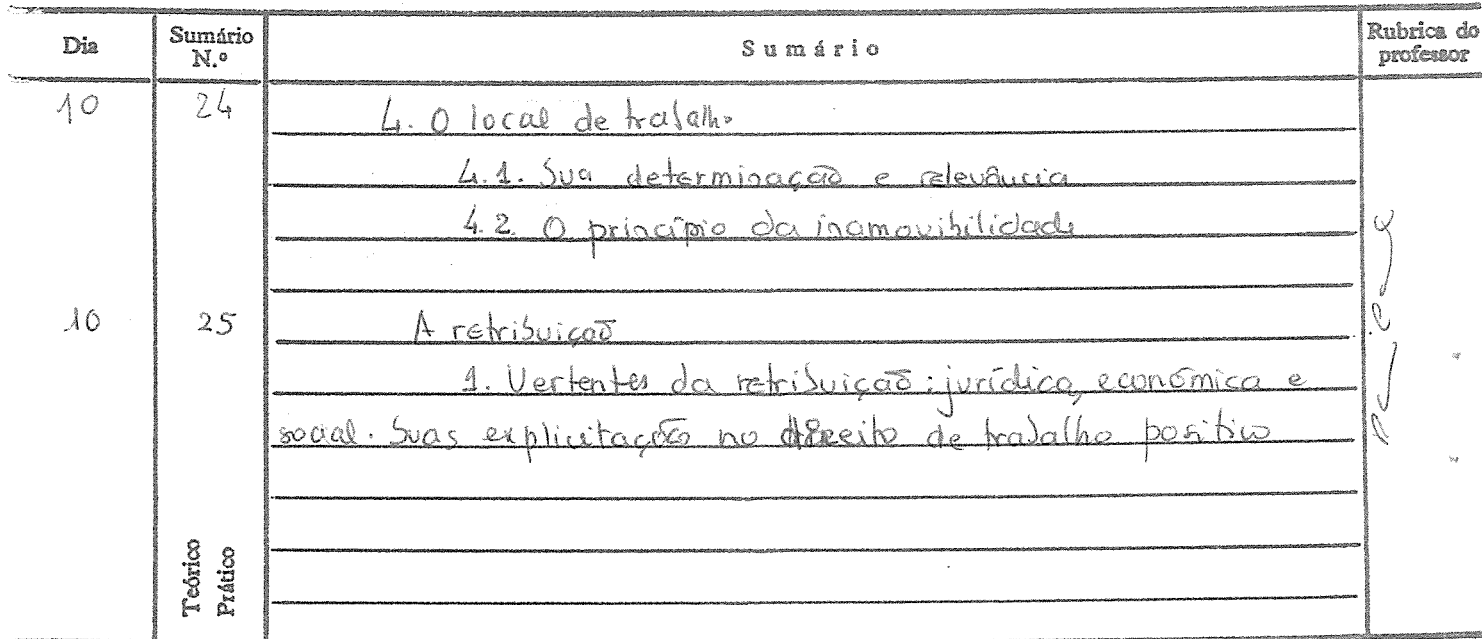 Dia Sumário N.º Sumário Rubrica do professor
10 24 4. O local de trabalho
4.1. Sua determinação e relevância
4.2. O princípio da inamovibilidade
10 25 A retribuição
1. Vertentes da retribuição: jurídica, económica e
social. Suas explicitações no direito de trabalho positivo
Teórico
Prático